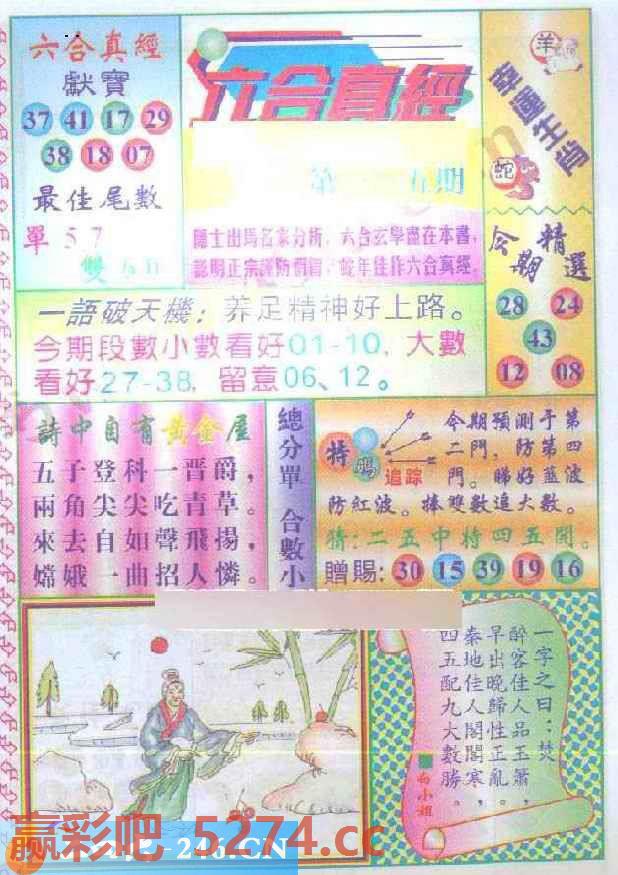 六合真經
獻寶
37 41 17 29
38 18 07
最佳尾數
單 5 7
雙
六合真經
第 五期
隱士出馬名家分析，六合玄學盡在本書，
認明正宗謹防假冒，蛇年佳作六合真經。
羊
幸運生肖
蛇
今期精選
28 24
43
12 08
一語破天機：养足精神好上路。
今期段數小數看好01-10，大數
看好27-38，留意06、12。
詩中自有黃金屋
五子登科一晋爵，
兩角尖尖吃青草。
來去自如聲飛揚，
嫦娥一曲招人憐。
總分單 合數小
特碼
追踪
今期預測于第
二門，防第四
門。睇好藍波
防紅波。捧雙數追大數。
猜:二五中特四五開。
贈賜: 30 15 39 19 16
一字之曰：焚
醉客佳人品玉簫
早出晚歸性正亂，
秦地佳人閣閣寒，
四五配九大數勝。
白小姐
赢彩吧 5274.cc
246.CN